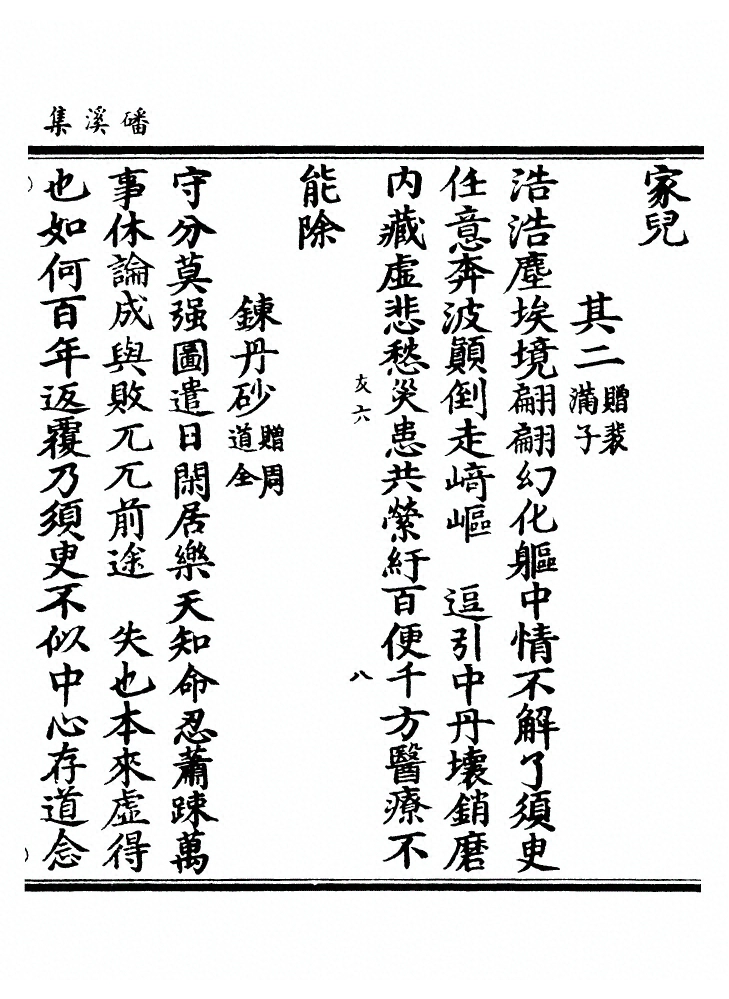 磻溪集
家兒
其二 贈裴滿子
浩浩塵埃境翩翩幻化軀中情不解了須臾
任意奔波顛倒走﨑嶇　逗引中丹壞銷磨
内藏虛悲愁災患共縈紆百便千方醫療不
亥六
八
能除
鍊丹砂 贈周道全
守分莫强圖遣日閑居樂天知命忍蕭踈萬
事休論成與敗兀兀前途　失也本來虛得
也如何百年返覆乃須臾不似中心存道念